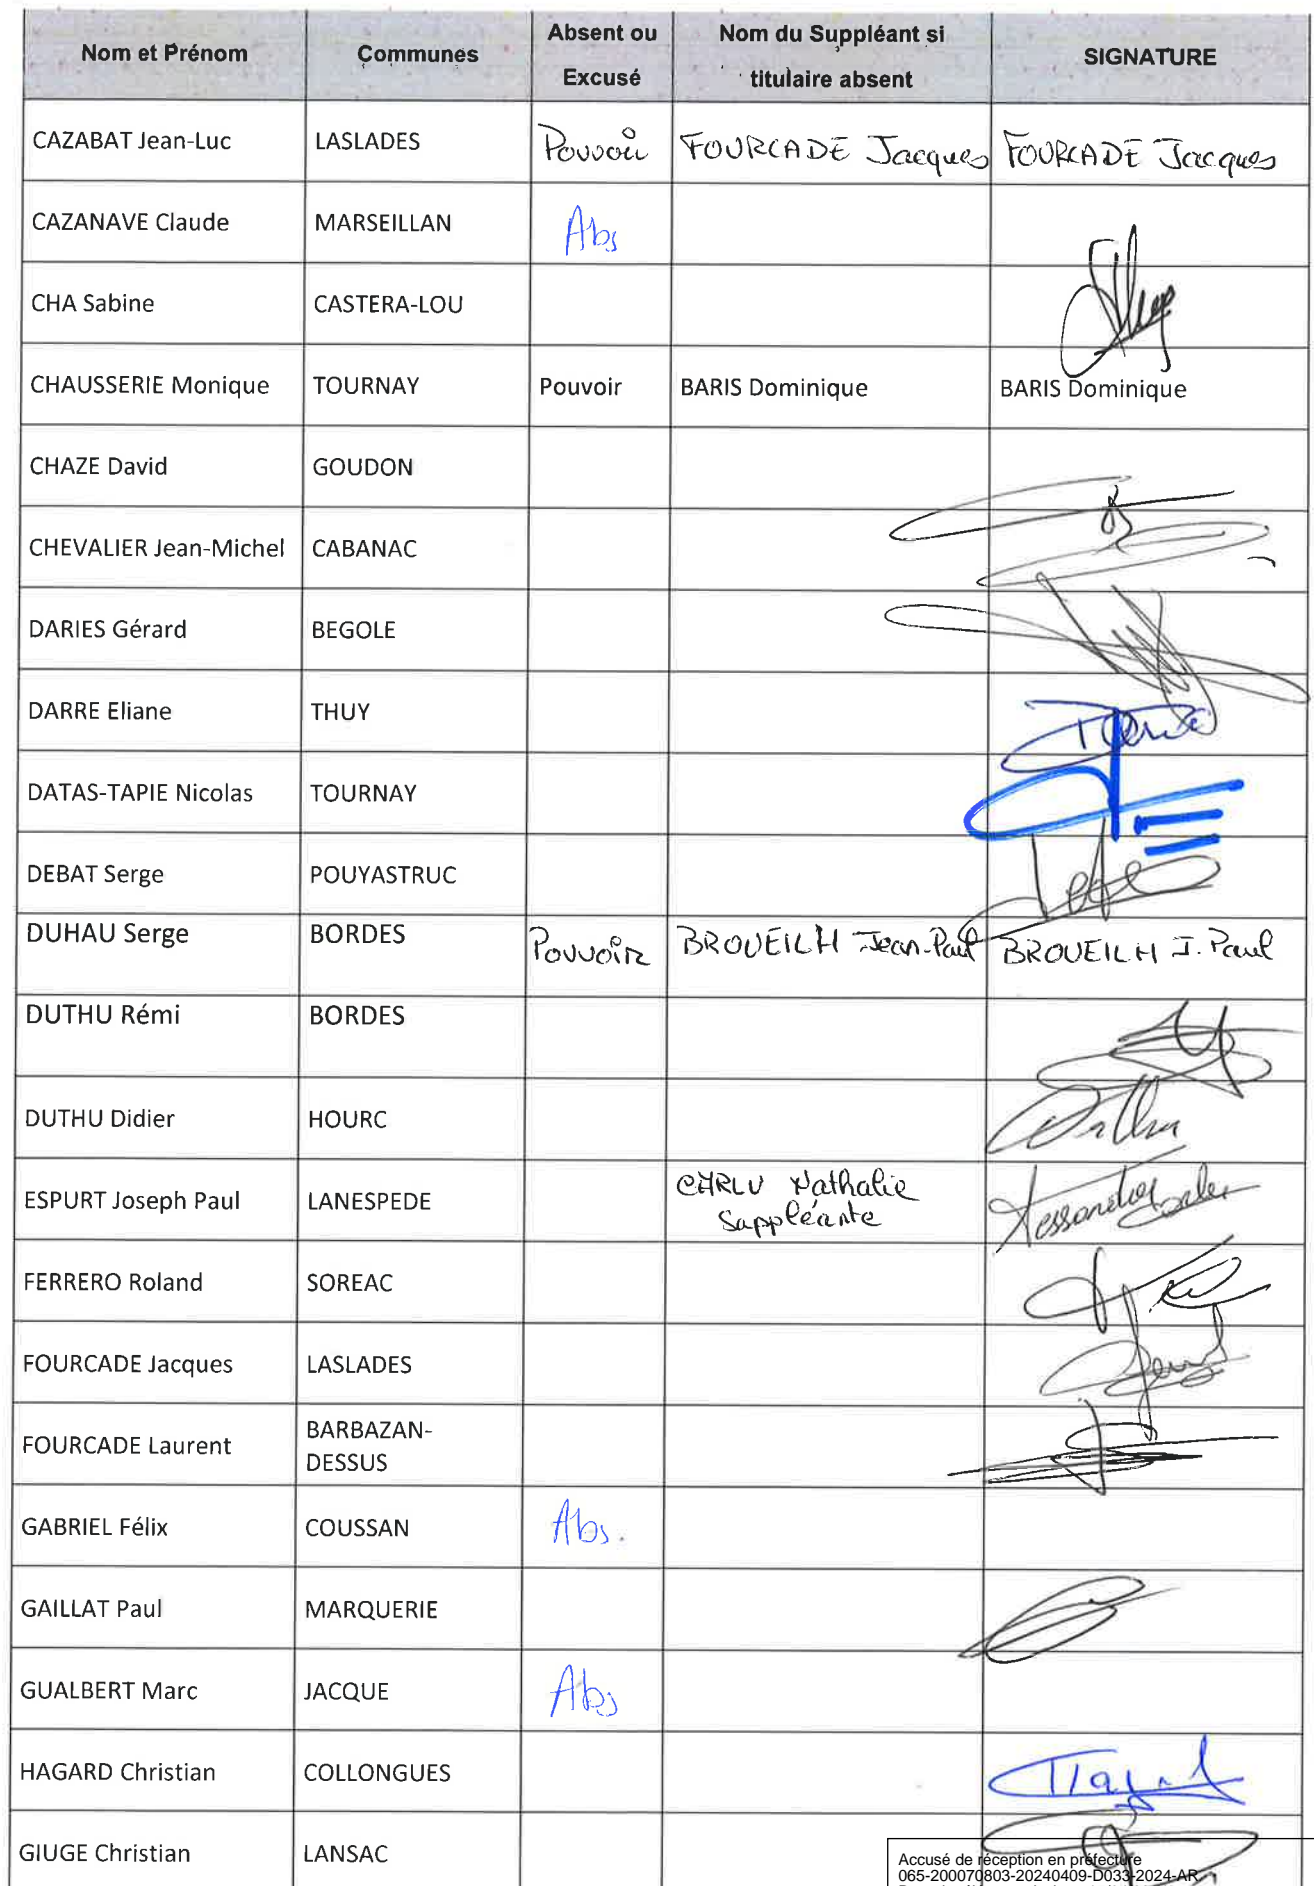 Nom et Prénom Communes Absent ou Excusé Nom du Suppléant si titulaire absent SIGNATURE
CAZABAT Jean-Luc LASLADES Pouvoir FOURCADE Jacques FOURCADE Jacques
CAZANAVE Claude MARSEILLAN Abs
CHA Sabine CASTERA-LOU
CHAUSSERIE Monique TOURNAY Pouvoir BARIS Dominique BARIS Dominique
CHAZE David GOUDON
CHEVALIER Jean-Michel CABANAC
DARIES Gérard BEGOLE
DARRE Eliane THUY
DATAS-TAPIE Nicolas TOURNAY
DEBAT Serge POUYASTRUC
DUHAU Serge BORDES Pouvoir BROUEILH Jean-Paul BROUEILH J. Paul
DUTHU Rémi BORDES
DUTHU Didier HOURC
ESPURT Joseph Paul LANESPEDE CARLU Nathalie
Suppléante
FERRERO Roland SOREAC
FOURCADE Jacques LASLADES
FOURCADE Laurent BARBAZAN-
DESSUS
GABRIEL Félix COUSSAN Abs.
GAILLAT Paul MARQUERIE
GUALBERT Marc JACQUE Abs
HAGARD Christian COLLONGUES
GIUGE Christian LANSAC
Accusé de réception en préfecture
065-200070803-20240409-D033-2024-AR